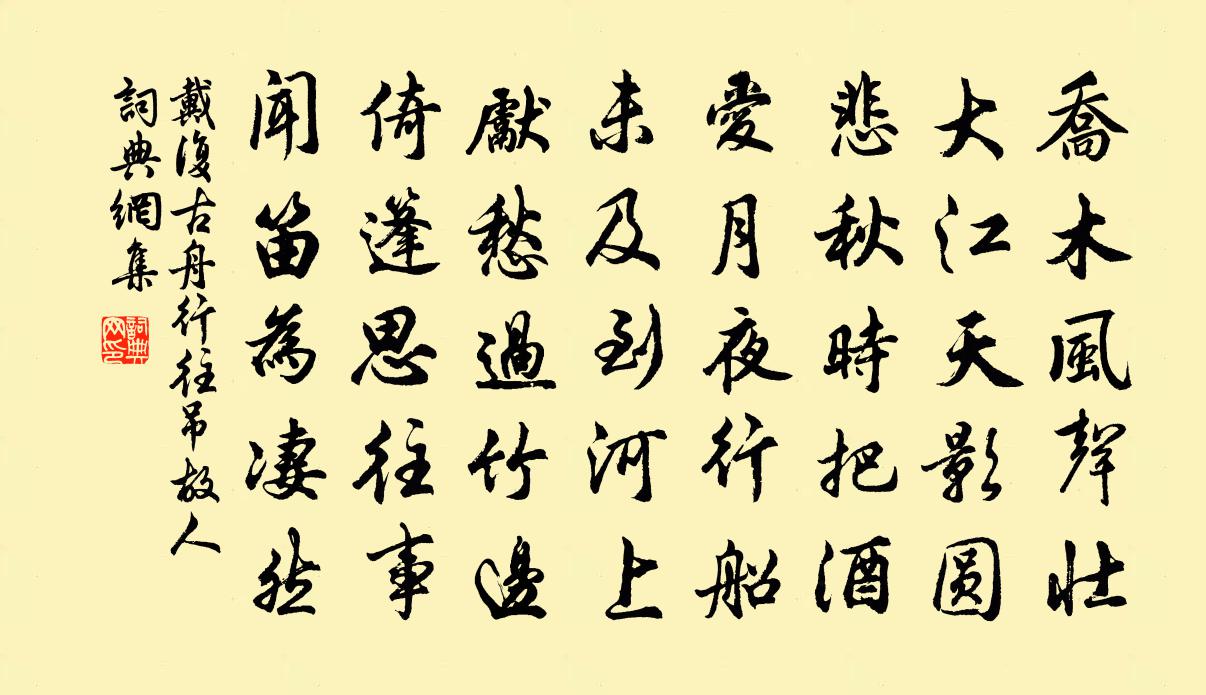 喬木風聲壯
大江天影圓
悲秋時把酒
愛月夜行船
未及到河上
獻愁過竹邊
倚篷思往事
聞笛為凄然
戴復古舟行往吊故人
詞典網集
詞典
网印